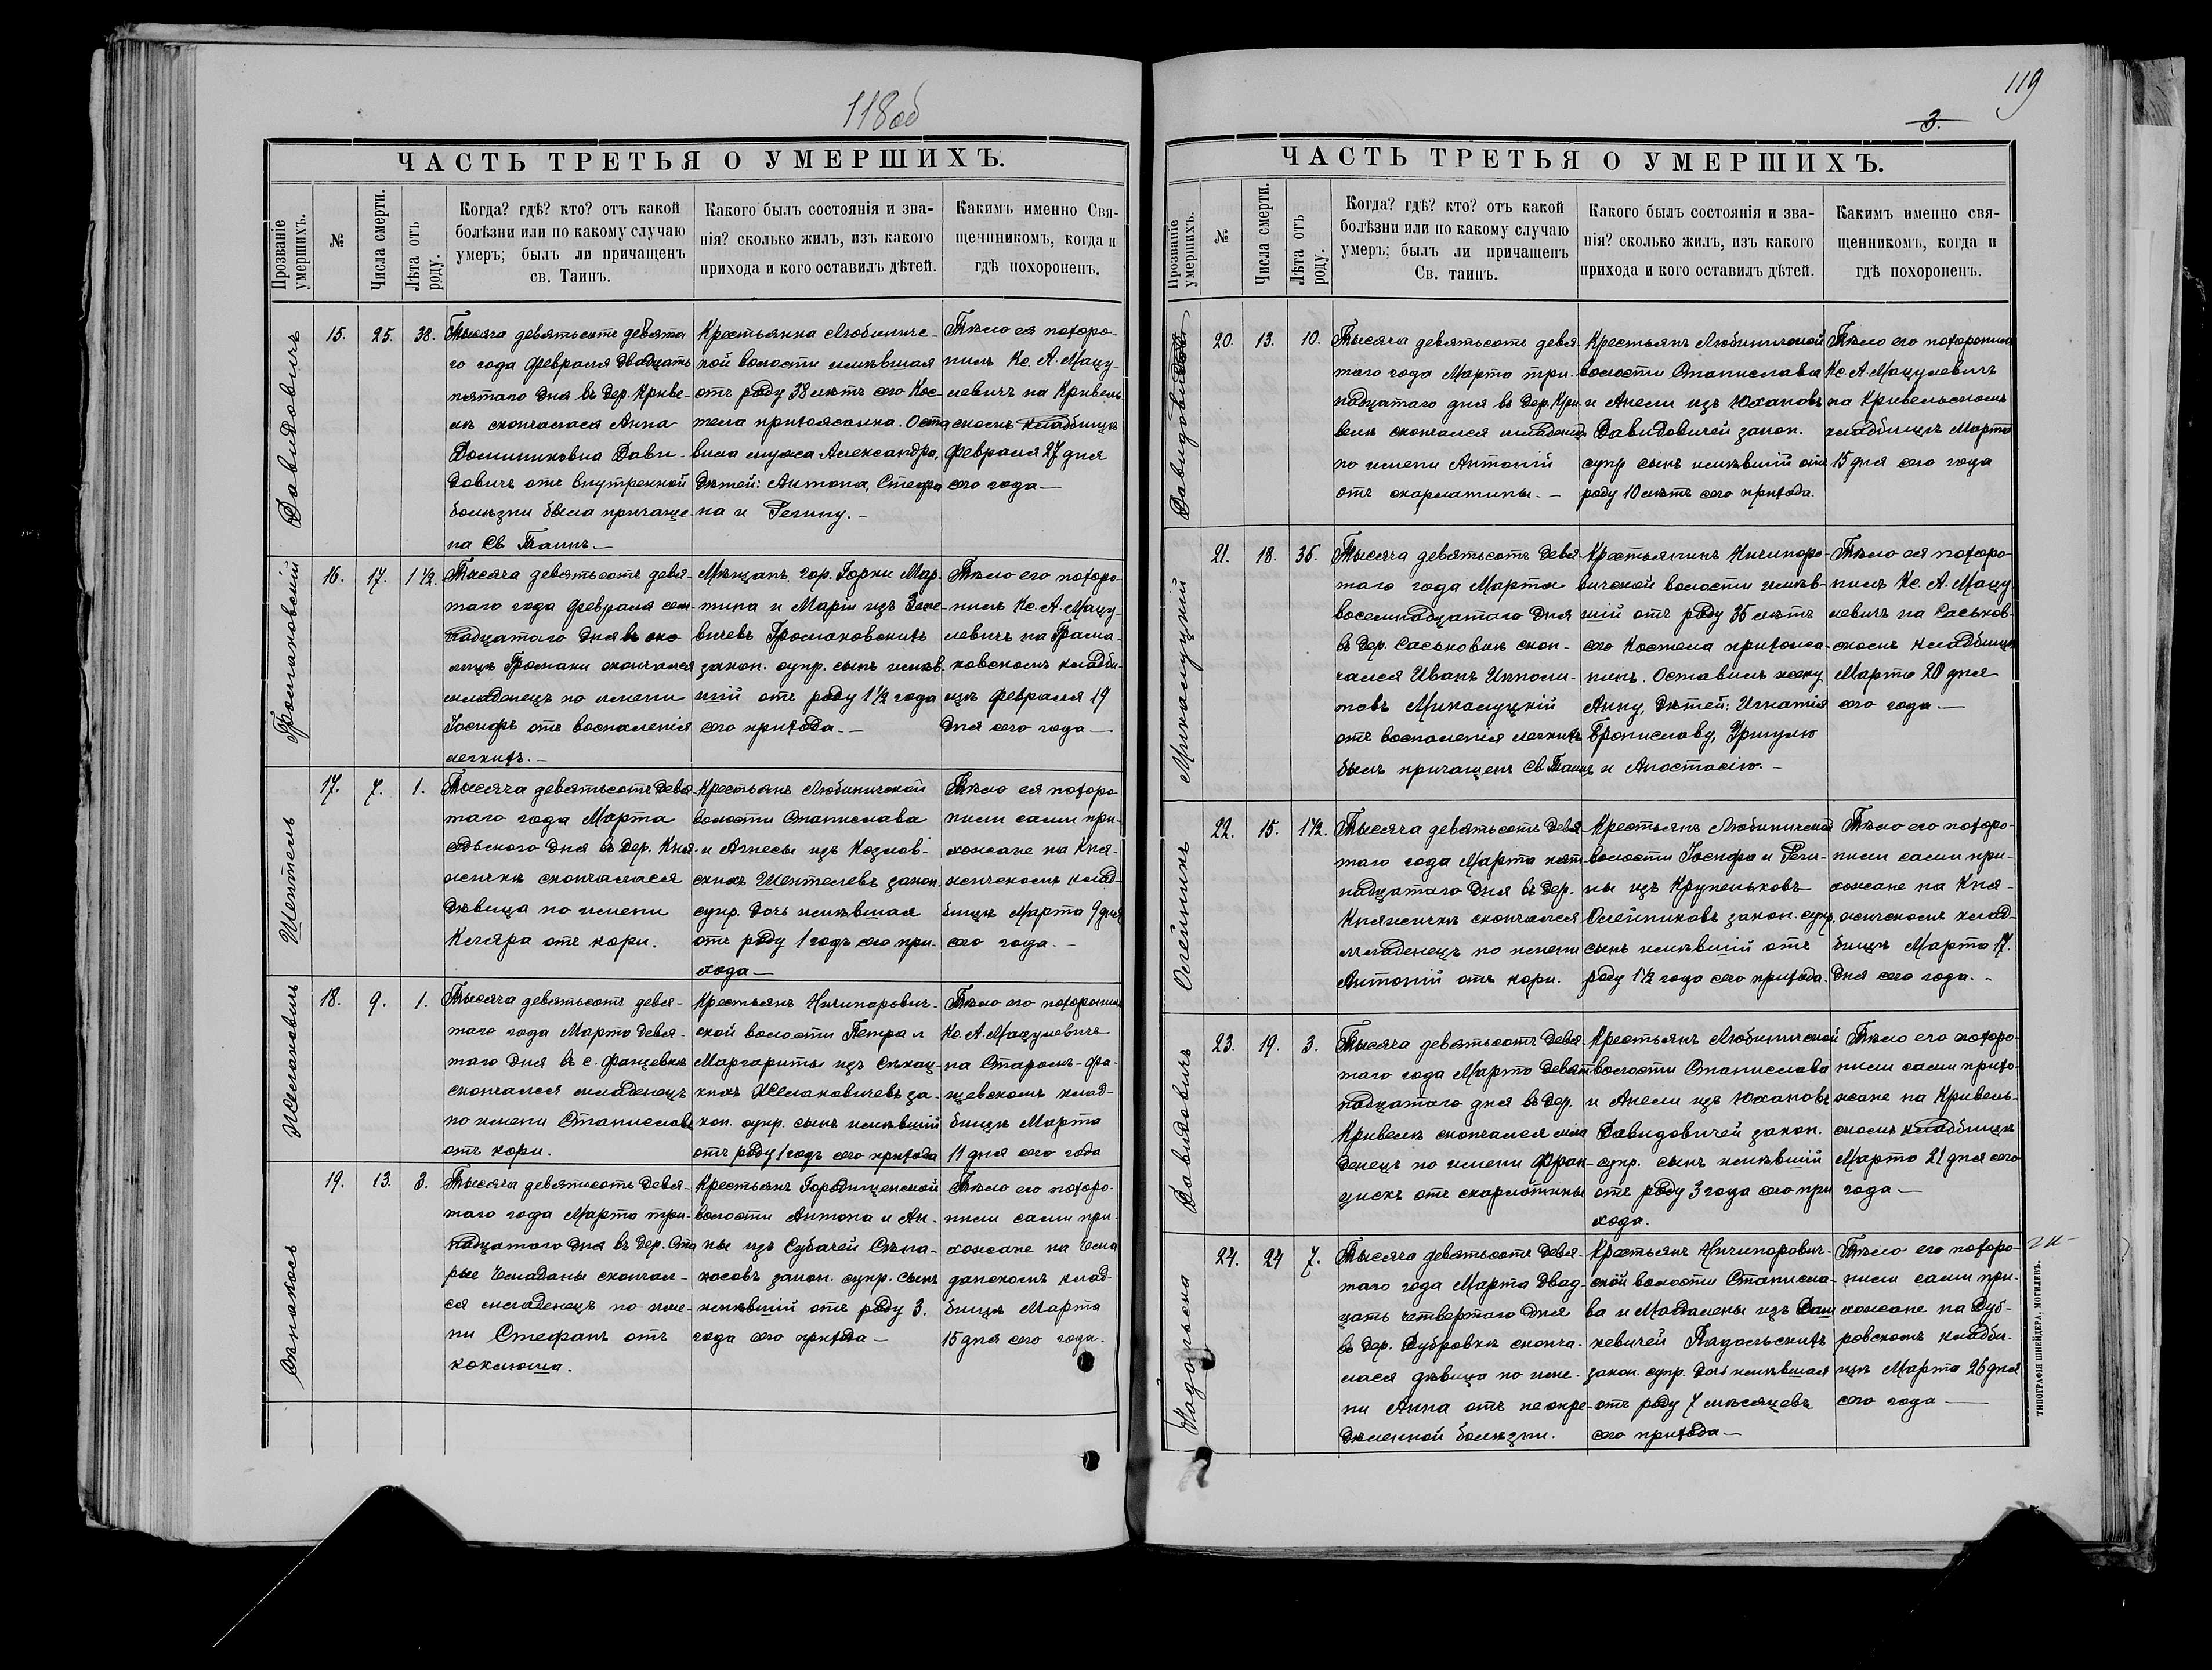 118об
ЧАСТЬ ТРЕТЬЯ О УМЕРШИХЪ.
Прозваніе умершихъ.
№
Числа смерти.
Лѣта отъ роду.
Когда? гдѣ? кто? отъ какой
болѣзни или по какому случаю
умеръ; былъ ли причащенъ
св. Таинъ.
Какого былъ состоянія и зва-
нія? сколько жилъ, изъ какого
прихода и кого оставилъ дѣтей.
Какимъ именно Свя-
щенникомъ, когда и
гдѣ похороненъ.
Давидовичъ
15.
25.
38.
Тысяча девятьсотъ девята
го года Февраля двадцать
пятаго дня въ дер. Криве-
лѣ скончалася Анна
Доминиковна Дави-
довичъ отъ внутренной
болѣзни была причаще-
на Св Таинъ.—
Крестьянка Любиничс-
кой волости имѣвшая
отъ роду 38 лѣтъ сего Кос-
тела прихожанка. Оста
вила мужа Александра,
дѣтей: Антона, Стефа
на и Регину.—
Тѣло ея похоро-
нилъ Кс. А. Мацу-
левичъ на Кривель
скомъ кладбищѣ
Февраля 27 дня
сего года—
Громаковскій
16.
17.
1 ½.
Тысяча девятьсотъ девя-
таго года Февраля сем-
надцатаго дня въ око-
лицѣ Громаки скончался
младенецъ по имени
Іосифъ отъ воспаленія
легкихъ.—
Мѣщанъ гор. Горки Мар-
тина и Маріи изъ Зене-
вичевъ Громаковскихъ
закон. супр. сынъ имѣв
шій отъ роду 1½ года
сего прихода.—
Тѣло его похоро-
нилъ Кс. А. Мацу-
левичъ на Грама-
ковскомъ кладби-
щѣ Февраля 19
дня сего года—
Шентель
17.
7.
1.
Тысяча девятьсотъ девя-
таго года Марта
седьмого дня въ дер. Кня-
жичкѣ скончалася
дѣвица по имени
Кляра отъ кори.
Крестьянъ Любиничской
волости Станислава
и Агнесы изъ Козлов-
скихъ Шентелевъ закон.
супр. дочь имѣвшая
отъ роду 1 годъ сего при-
хода—
Тѣло ея похоро
нили сами при-
хожане на Кня-
жичскомъ клад-
бищѣ Марта 9 дня
сего года.—
Жемановичъ
18.
9.
1.
Тысяча девятьсотъ девя-
таго года Марта девя-
таго дня въ с. Фащевкѣ
скончался младенецъ
по имени Станиславъ
отъ кори.
Крестьянъ Ничипорович-
ской волости Петра и
Маргариты изъ Сѣкац-
кихъ Жемановичевъ за-
кон. супр. сынъ имѣвшій
отъ роду 1 годъ сего прихода
Тѣло его похоронилъ
Кс. А. Мацулевичъ
на Старомъ-Фа-
щевскомъ клад-
бищѣ Марта
11 дня сего года
19.
13.
3.
Тысяча девятьсотъ девя-
таго года Марта три-
надцатаго дня въ дер. Ста
рые Чемаданы скончал-
ся младенецъ по име-
ни Стефанъ отъ
коклюша.
Крестьянъ Городищенской
волости Антона и Ан-
ны изъ Субачей Сѣма-
косовъ закон. супр. сынъ
имѣвшій отъ роду 3.
года сего прихода—
Тѣло его похоро-
нили сами при-
хожане на Чема
данскомъ клад-
бищѣ Марта
15 дня сего года.
119
3.
ЧАСТЬ ТРЕТЬЯ О УМЕРШИХЪ.
Прозваніе умершихъ.
№
Числа смерти.
Лѣта отъ роду.
Когда? гдѣ? кто? отъ какой
болѣзни или по какому случаю
умеръ; былъ ли причащенъ
Св. таинъ.
Какого былъ состоянія и зва-
нія? сколько жилъ, изъ какого
прихода и кого оставилъ дѣтей.
Какимъ именно свя-
щенникомъ, когда и
гдѣ похороненъ.
20.
13.
10.
Тысяча девятьсотъ девя-
таго года Марта три-
надцатаго дня въ дер. Кри
велѣ скончался младенецъ
по имени Антоній
отъ скарлатины.—
Крестьянъ Любиничской
волости Станислава
и Анели изъ Юхановъ
Давидовичей закон.
супр сынъ имѣвшій отъ
роду 10 лѣтъ сего прихода.
Тѣло его похоронилъ
Кс. А. Мацулевичъ
на Кривельскомъ
кладбищѣ Марта
15 дня сего года
Микалуцкій
21.
18.
35.
Тысяча девятьсотъ девя
таго года Марта
восемнадцатаго дня
въ дер. Саськовкѣ скон-
чался Иванъ Ипполи-
товъ Микалуцкій
отъ воспаленія легкихъ
былъ причащенъ Св Таинъ
Крестьянинъ Ничипоро-
вичской волости имѣв-
шій отъ роду 35 лѣтъ
сего Костела прихожа-
нинъ. Оставилъ жену
Анну, дѣтей: Игнатія
Брониславу, Уршулю
и Анастасію.—
Тѣло ея похоро-
нилъ Кс. А. Мацу
левичъ на Саськов-
скомъ кладбищѣ
Марта 20 дня
сего года.—
Олейникъ
22.
15.
1½.
Тысяча девятьсотъ девя-
таго года Марта пят-
надцатаго дня въ дер.
Княжичкѣ скончался
младенецъ по имени
Антоній отъ кори.
Крестьянъ Любиничской
волости Іосифа и Реги-
ны изъ Крупеньковъ
Олейниковъ закон. супр.
сынъ имѣвшій отъ
роду 1½ года сего прихода.
Тѣло его похоро-
нили сами при-
хожане на Кня-
жичскомъ клад-
бищѣ Марта 17.
дня сего года.—
Давидовичъ
23.
19.
3.
Тысяча девятьсотъ девя-
таго года Марта девят
надцатаго дня въ дер.
Кривелѣ скончался мла
денецъ по имени Фран-
цискъ отъ скарлатины
Крестьянъ Любиничской
волости Станислава
и Анели изъ Юхановъ
Давидовичей закон.
супр. сынъ имѣвшій
отъ роду 3 года сего при
хода.
Тѣло его похоро-
нили сами прихо-
жане на Кривель-
скомъ кладбищѣ
Марта 21 дня сего
года—
24.
24
7.
Тысяча девятьсотъ девя-
таго года Марта двад-
цать четвертаго дня
въ дер. Дубровкѣ сконча-
лася дѣвица по име-
ни Анна отъ неопре-
дѣленной болѣзни.
Крестьянъ Ничипорович-
ской волости Станисла-
ва и Магдалены изъ Даш
кевичей Падольскихъ
закон. супр. дочь имѣвшая
отъ роду 7 мѣсяцевъ
сего прихода—
Тѣло его похоро-
нили сами при-
хожане на Дуб-
ровскомъ кладби-
щѣ Марта 26 дня
сего года—
ТИПОГРАФІЯ ШНЕЙДЕРА, МОГИЛЕВЪ.